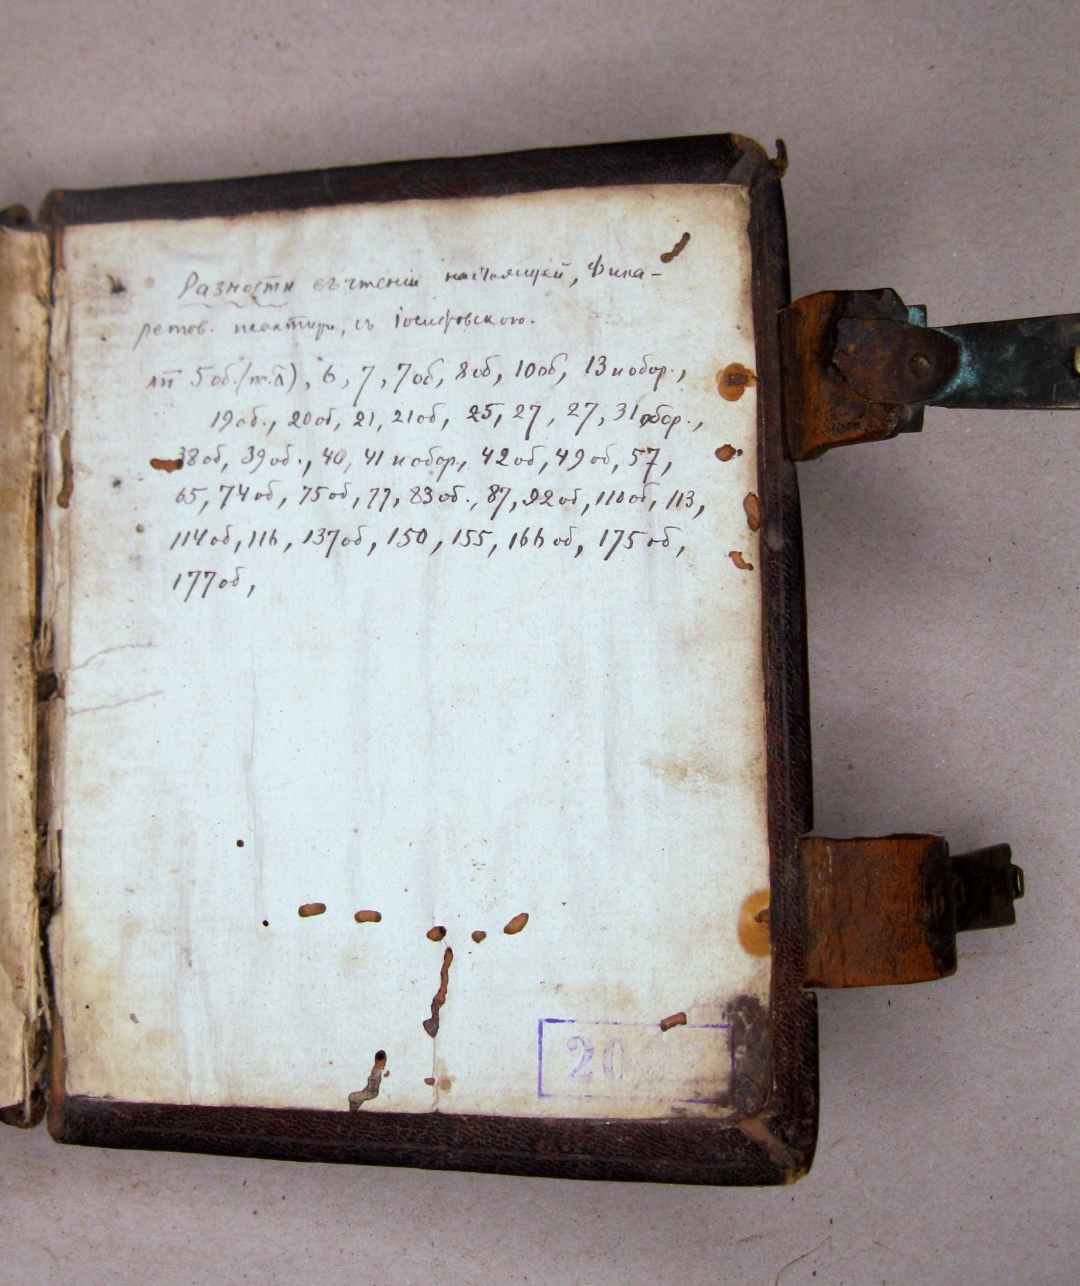 Разности въ чтеніи настоящей, Фила-
ретов. псалтири, съ Іосифовскою.
лл 5 об. (т.л), 6, 7, 7 об, 8 об, 10 об, 13 и обор.,
19 об., 20 об, 21, 21 об, 25, 27, 27, 31 обор.,
38 об, 39 об., 40, 41 и обор., 42 об, 49 об, 57,
65, 74 об, 75 об, 77, 83 об., 87, 92 об, 110 об, 113,
114 об, 116, 137 об, 150, 155, 166 об, 175 об,
177 об,